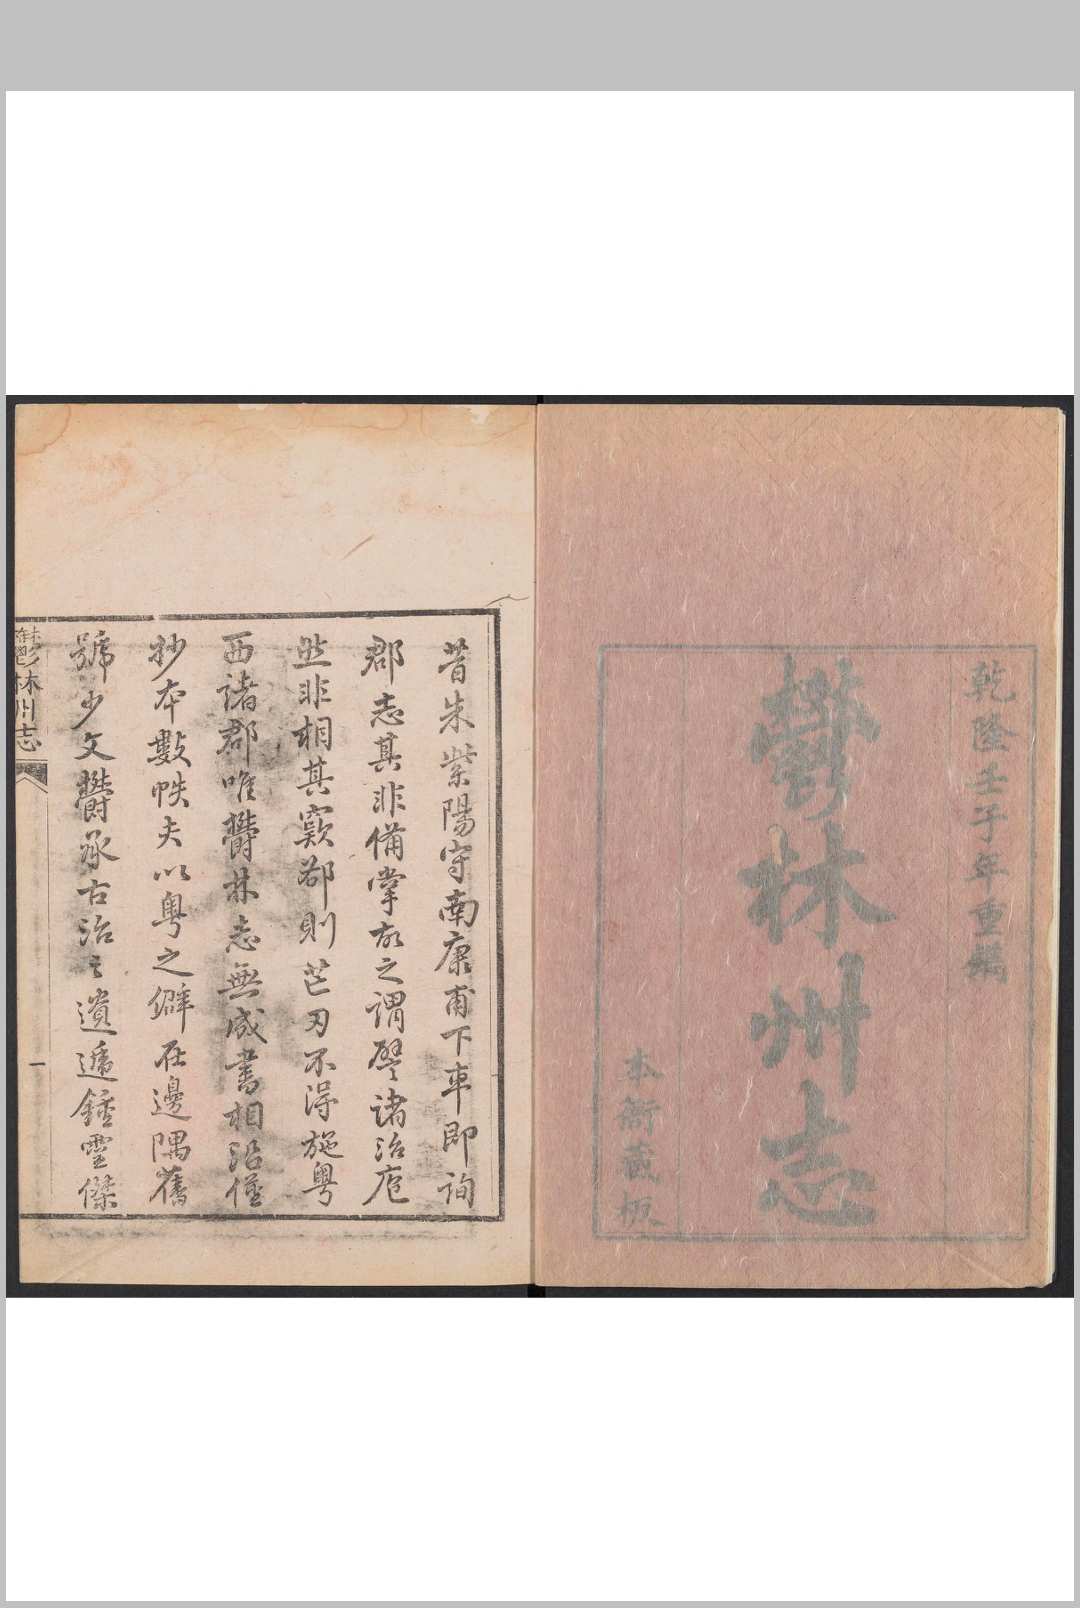 乾隆壬子年重鐫
鬱林州志
本衙藏板
昔朱紫陽守南康甫下車即詢
郡志其非備掌故之謂譬諸治庖
然非相其窾郤則芒刃不得施粵
西諸郡唯鬱林志無成書相沿僅
抄本數帙夫以粵之僻在邊隅舊
號少文鬱承古治之遺遞鍾靈傑
鬱林州志
一